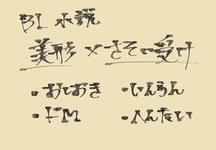 BL 小説
美形 × さそい受け
・おしおき ・いんらん
・ドM ・へんたい